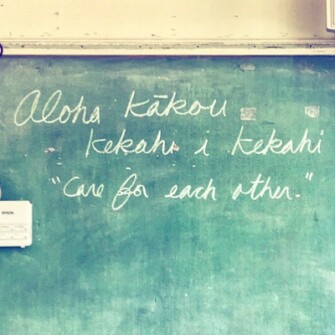 Aloha kākou
kekahi i kekahi
"Care for each other."